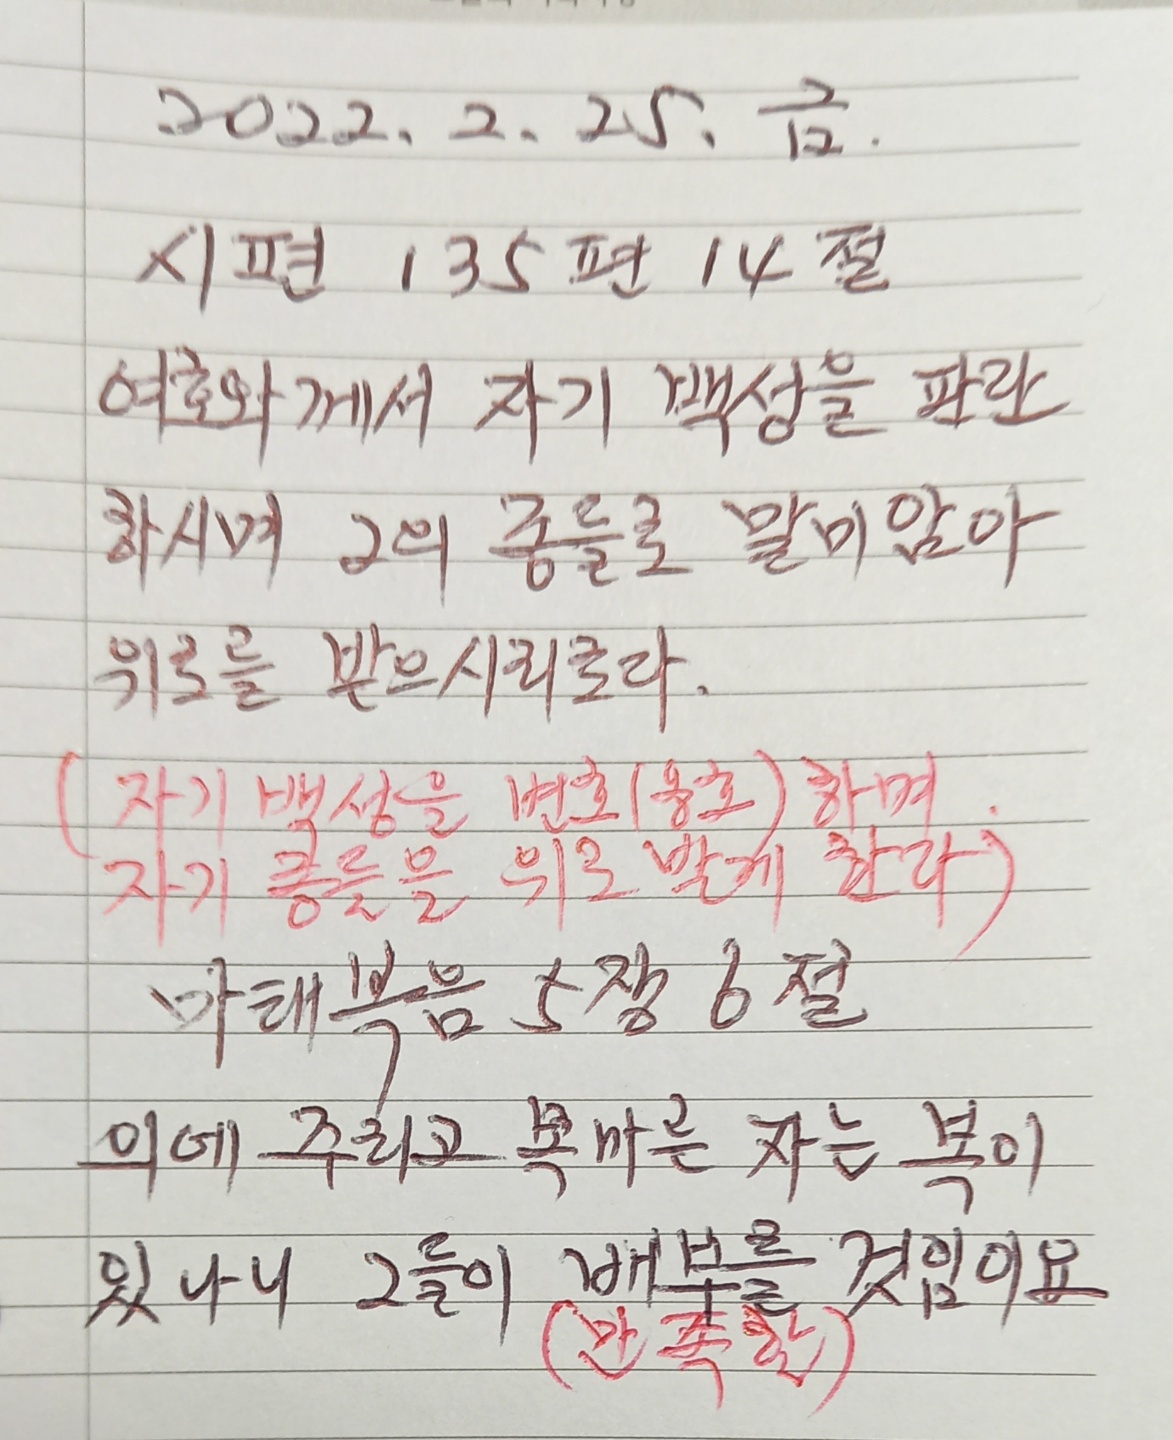 2022. 2. 25. 금.
시편 135편 14절
여호와께서 자기 백성을 판단
하시며 그의 종들로 말미암아
위로를 받으시리로다.
(자기 백성을 변호(옹호)하며.
자기 종들을 위로 받게 한다)
마태복음 5장 6절
의에 주리고 목마른 자는 복이
있나니 그들이 배부를 것임이요
(만족할)